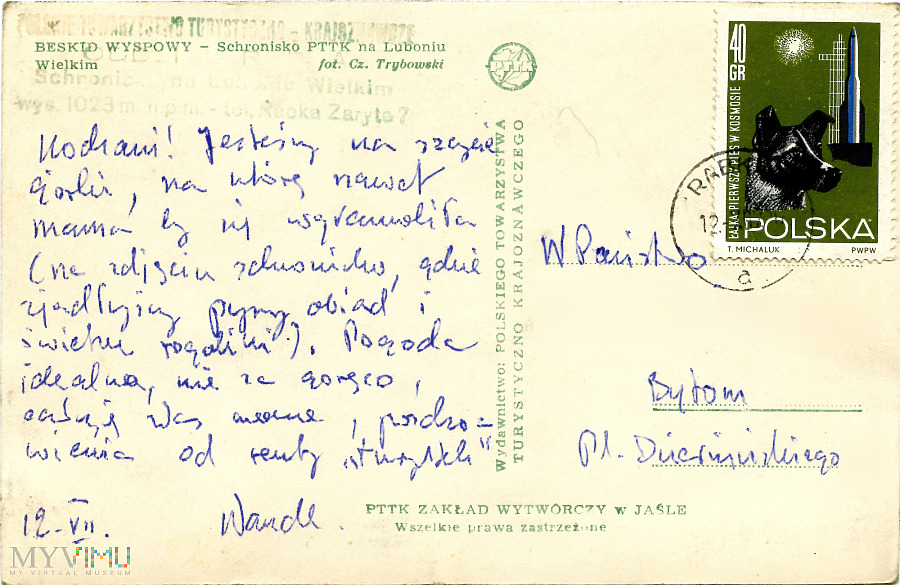 POLSKIE TOWARZYSTWO TURYSTYCZNO - KRAJOZNAWCZE
Schronisko na Luboniu Wielkim
wys. 1023 m n.p.m. - tel. Rabka Zaryte 7
BESKID WYSPOWY – Schronisko PTTK na Luboniu
Wielkim fot. Cz. Trybowski
PTTK
Kochani! Jesteśmy na szczycie
górki, na którą nawet
mama by się wgramoliła
(na zdjęciu schronisko, gdzie
zjedliśmy pyszny obiad i
świetne rogaliki). Pogoda
idealna, nie za gorąco,
całuję Was mocno, pozdro-
wienia od reszty „turystek”
12-VII. Wanda.
Wydawnictwo: POLSKIEGO TOWARZYSTWA
TURYSTYCZNO KRAJOZNAWCZEGO
40
GR
ŁAJKA-PIERWSZY PIES W KOSMOSIE
POLSKA
T. MICHALUK PWPW
12
a
W Państwo
Bytom
Pl. Dzierżyńskiego
PTTK ZAKŁAD WYTWÓRCZY w JAŚLE
Wszelkie prawa zastrzeżone
MYVIMU
MY VIRTUAL MUSEUM